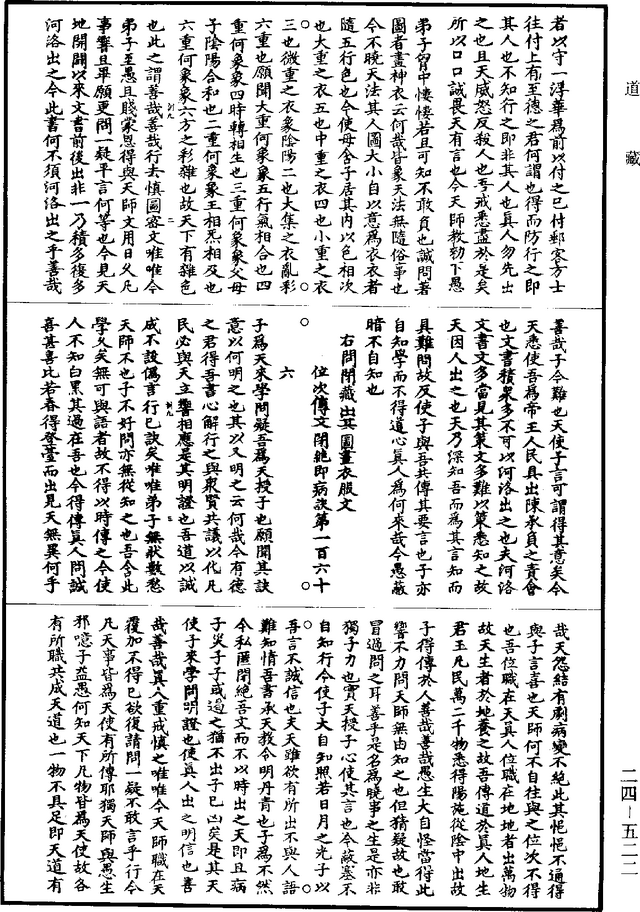 道藏
者以守一浮華爲前以付之已付郵客方士
往付上有至德之君何謂也得而防行之即
其人也不知行之即非其人也真人勿先出
之也且天威怒反殺人也吾戒悉盡於是矣
所以口口誠畏天有言也今天師教勑下愚
弟子胷中悽悽若且可知不敢負也誠問著
圖者畫神衣云何哉皆象天法無隨俗事也
今不曉天法其人圖大小自以意爲衣衣者
隨五行色也今使母含子居其內以色相次
也大重之衣五也中重之衣四也小重之衣
三也微重之衣象陰陽二也大集之衣亂彩
六重也願聞大重何象象五行氣相合也四
重何象象四時轉相生也三重何象象父母
子陰陽合和也二重何象象王相炁相及也
六重何象象六方之彩雜也故天下有雜色
也此之謂善哉善哉行去慎圖密文唯唯今
弟子至愚且賤蒙恩得與天師文用日久凡
事響且畢願更問一疑平言何等也今見天
地開闢以來文書前後出非一乃積多復多
河洛出之今此書何不須河洛出之乎善哉
善哉子今難也天使子言可謂得其意矣今
天悉使吾爲帝王人民具出陳承負之責會
也文書積衆多不可以河洛出之也夫河洛
文書文多當見其策文多難以策悉知之故
天因人出之也天乃深知吾而爲其言知而
具難問故反使子與吾共傳其要言也子亦
自知學而不得道心真人爲何來哉今愚蔽
暗不自知也
右問閉藏出其圖畫衣服文
位次傳文閉絕即病訣第一百六十
六
子爲天來學問疑吾爲天授子也願聞其訣
意以何明之也其以又明之云何哉今有德
之君得吾書心解行之與衆賢共議以化凡
民必與天立響相應是其明證也吾道以誠
成不設僞言行已訣矣唯唯弟子無狀數愁
天師不也子不好問亦無從知之也吾含此
學久矣無可與語者故不得以時傳之今使
人不知白黑其過在吾也今得傳真人問誠
喜甚喜比若春得登臺而出見天無異何乎
哉天怨結有劇病變不絕此其悒悒不通得
與子言喜也天師何不自往與之位次不得
也吾位職在天真人位職在地地者出萬物
故天生者於地養之故吾傳道於真人地生
君王凡民萬二千物悉得陽施從陰中出故
子得傳於人善哉善哉愚生大自怪當得此
響不力問天師無由知之也但猜疑故也敢
冒過問之耳善乎是名爲曉事之生是亦非
獨子力也實天授子心使其言也今蔽塞不
自知行今使子大自知照若日月之光子以
吾言不誠信也夫天雖欲有所出不與人語
難知情吾書承天教令明丹青也子爲不然
今私匿閉絕吾文而不以時出之天即且病
子災子子或過之猶不出子已凶矣是其天
使子來學問明證也使真人出之明信也善
哉善哉真人重戒慎之唯唯今天師職在天
覆加不得已欲復請問一疑不敢言乎行今
凡天事皆爲天使有所傳耶獨天師與愚生
邪噫子益愚何知天下凡物皆爲天使故各
有所職共成天道也一物不具足即天道有
二四—五二二